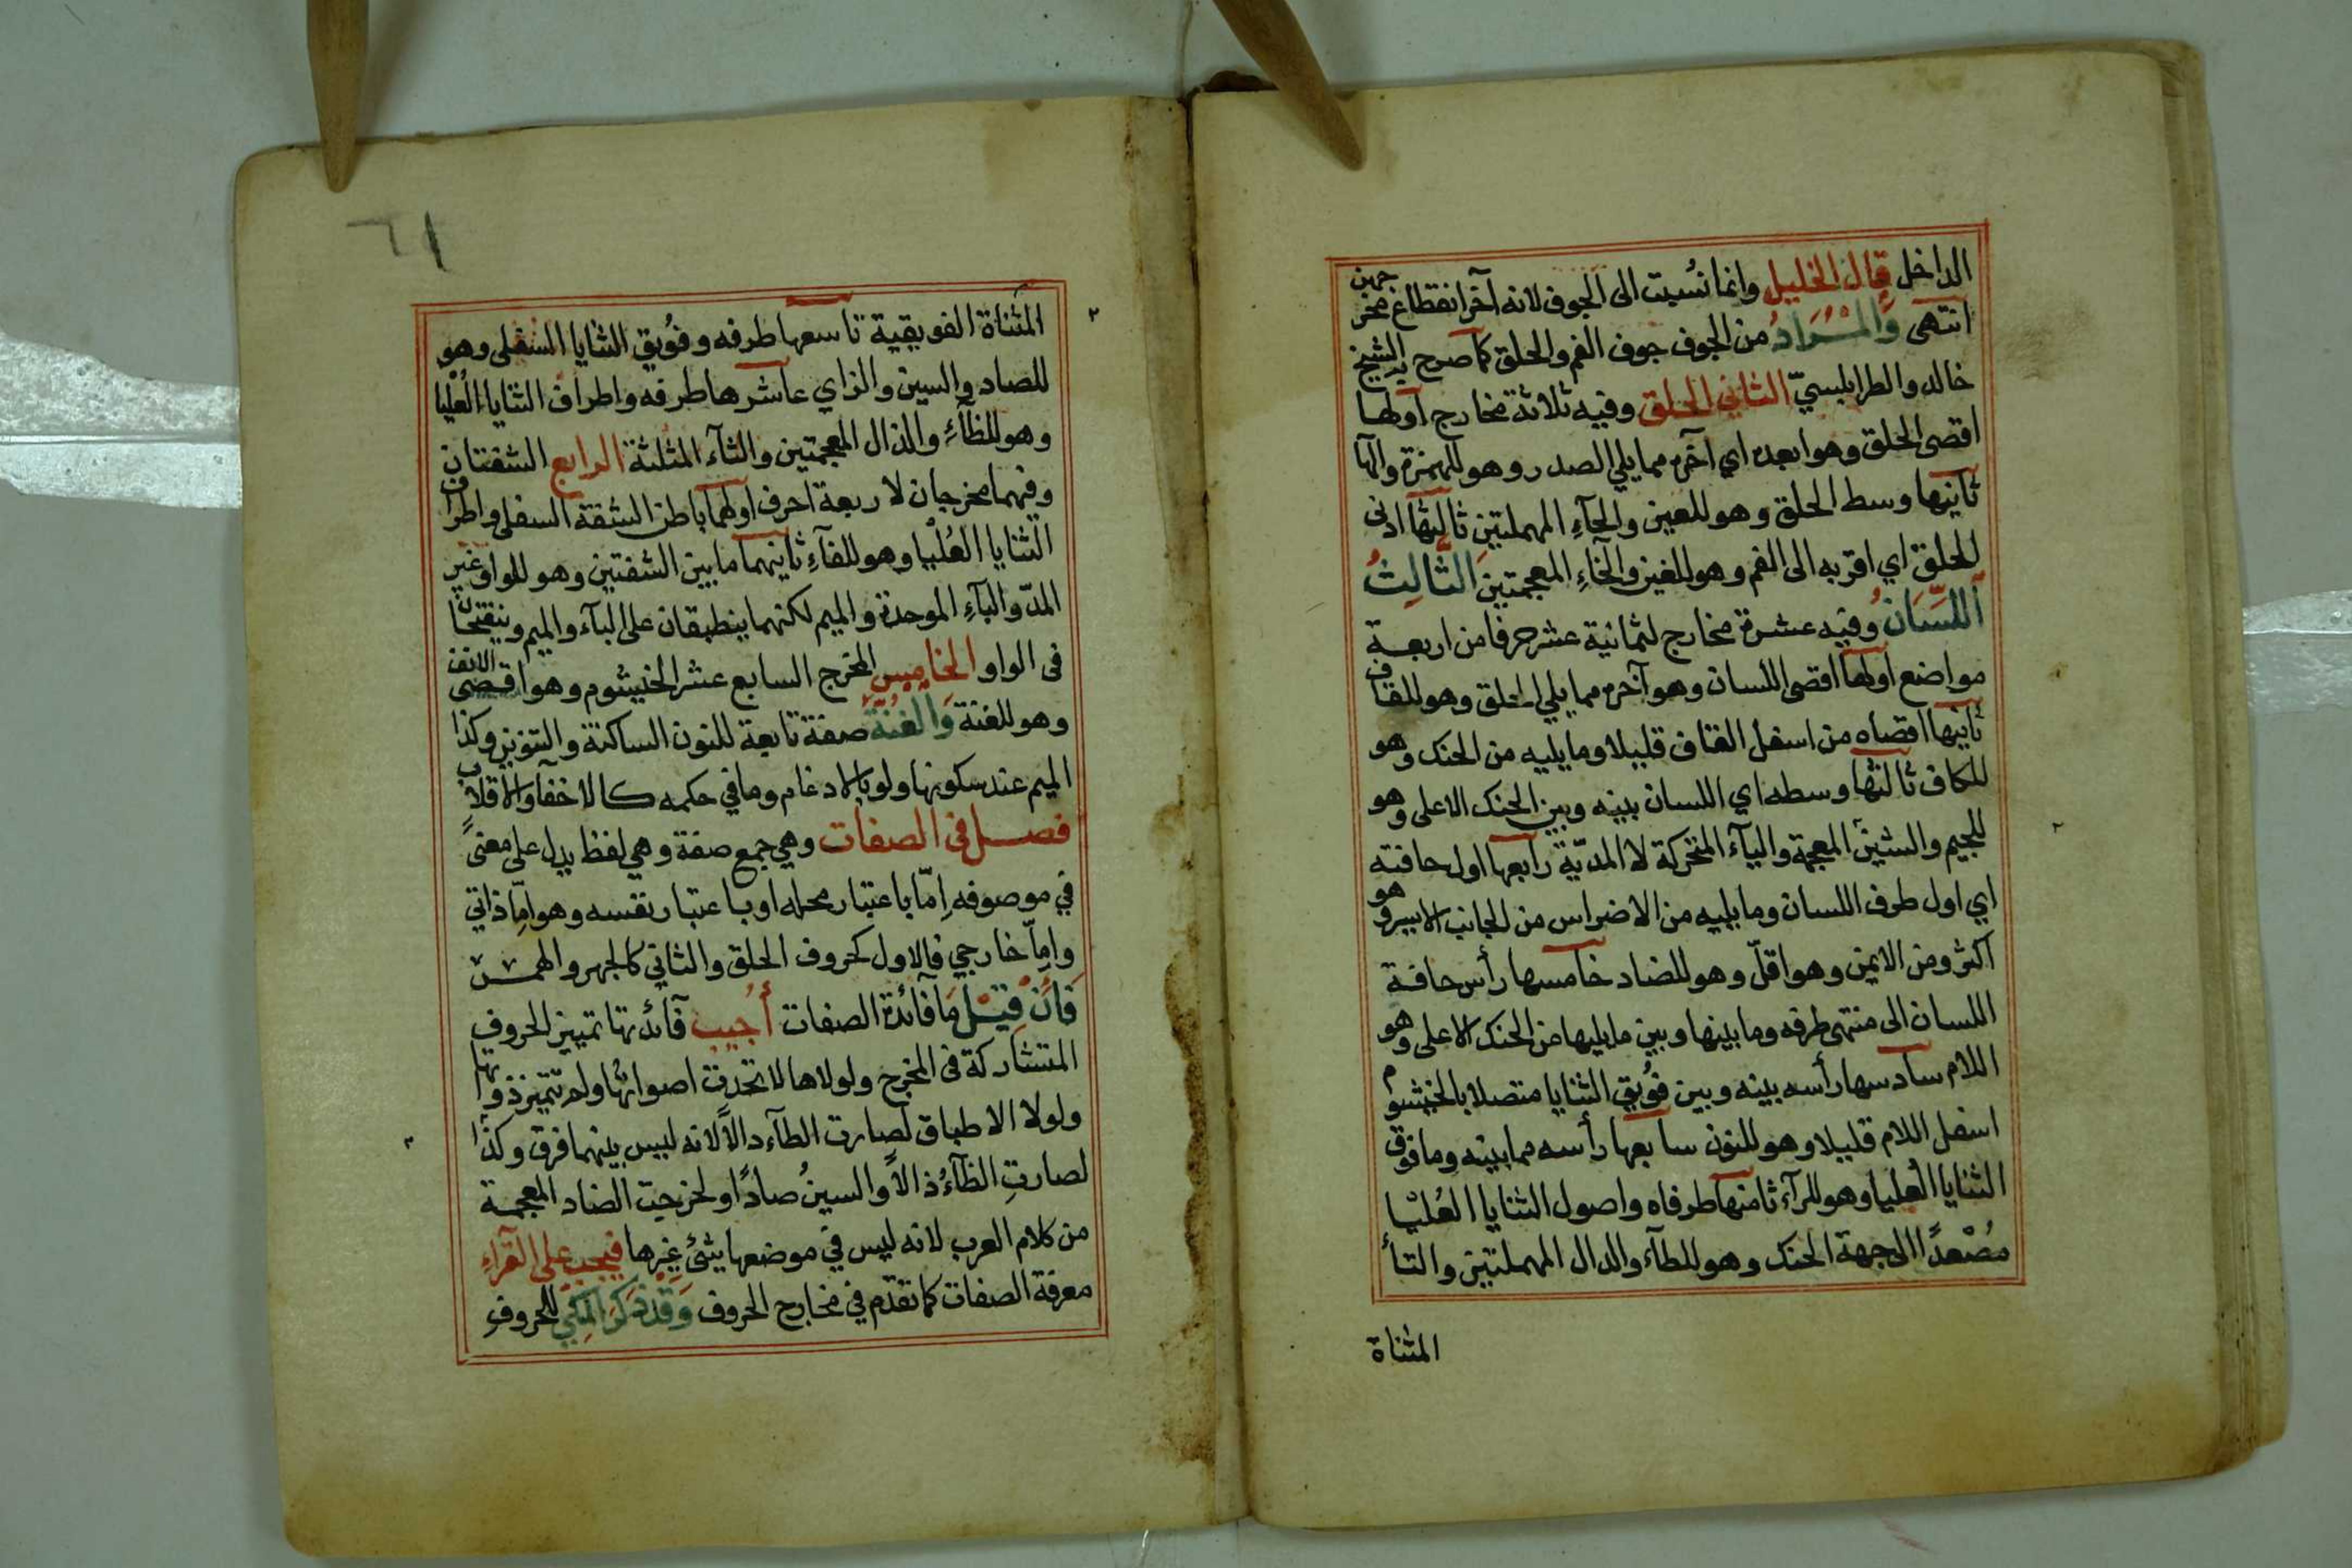 الداخل قال الخليل وانما نُسبت الى الجوف لانه آخر انقطاع مخرجهن
انتهى وَالْمُرَادُ من الجوف جوف الفم والحلق كما صرح به الشيخ
خالد والطرابلسيّ الثاني الحلق وفيه ثلاثة مخارج اولها
اقصى الحلق وهو ابعده اي آخره مما يلي الصدر وهو للهمزة والها
ثانيها وسط الحلق وهو للعين والحآءِ المهملتين ثالثها ادنى
الحلق اي اقربه الى الفم وهو للغين والخاءِ المعجمتين الثَّالِثُ
اَللِّسَانُ وفيه عشرة مخارج لثمانية عشر حرفا من اربعة
مواضع اولها اقصى اللسان وهو آخره مما يلي الحلق وهو للقاف
ثانيها اقصاه من اسفل القاف قليلا وما يليه من الحنك وهو
للكاف ثالثها وسطه اي اللسان بينه وبين الحنك الاعلى وهو
للجيم والشين المعجمة واليآء المتحركة لا المديّة رابعها اول حافته
اي اول طرف اللسان وما يليه من الاضراس من الجانب الايسر وهو
اكثر ومن الايمن وهو اقلّ وهو للضاد خامسها رأس حافة
اللسان الى منتهى طرفه وما بينها وبين ما يليها من الحنك الاعلى وهو
اللام سادسها رأسه بينه وبين فُويق الثنايا متصلا بالخيشوم
اسفل اللام قليلا وهو للنون سابعها رأسه مما بينه وما فوق
الثنايا العليا وهو للرآء ثامنها طرفاه واصول الثنايا العُلْيا
مُصْعدًا الى جهة الحنك وهو للطآء والدال المهملتين والتأ
المثناة
٦١
المثناة الفوقية تاسعها طرفه وفُويق الثنايا السفلى وهو
للصاد والسين والزاي عاشرها طرفه واطراف الثنايا العُلْيا
وهو للظآءِ والذال المعجمتين والثآء المثلثة الرابع الشفتان
وفيهما مخرجان لاربعة احرف اولهما باطن الشفة السفلى واطراف
الثنايا العُلْيا وهو للفآءِ ثانيهما ما بين الشفتين وهو للواو غير
المدّ والبآءِ الموحدة والميم لكنهما ينطبقان على البآء والميم وينفتحان
فى الواو الخامِس المخرج السابع عشر الخيشوم وهو اقصى الانف
وهو للغنة وَالْغُنَّةُ صفة تابعة للنون الساكنة والتنوين وكذا
الميم عند سكونها ولو بالادغام وما في حكمه كالاخفآء والاقلاب
فصل فى الصفات وهي جمع صفة وهي لفظ يدل على معنىً
في موصوفه اِمّا باعتبار محله او باعتبار نفسه وهو اِمّا ذاتي
واِمّا خارجي فالاول كحروف الحلق والثاني كالجهر والهمس
فَاِنْ قِيْلَ مَا فآئدة الصفات أُجِيب فآئدتها تمييز الحروف
المتشاركة فى المخرج ولولاها لاتحدت اصواتها ولم تتميز ذواتها
ولولا الاطباق لصارت الطآء دالًا لانه ليس بينهما فرق وكذا
لصارتِ الظآءُ ذالًا والسينُ صادًا ولخرجت الضاد المعجمة
من كلام العرب لانه ليس في موضعها شئ غيرها فيجب على القرآءِ
معرفة الصفات كما تقدّم في مخارج الحروف وَقَدْ ذَكَرَ المكّي للحروفِ